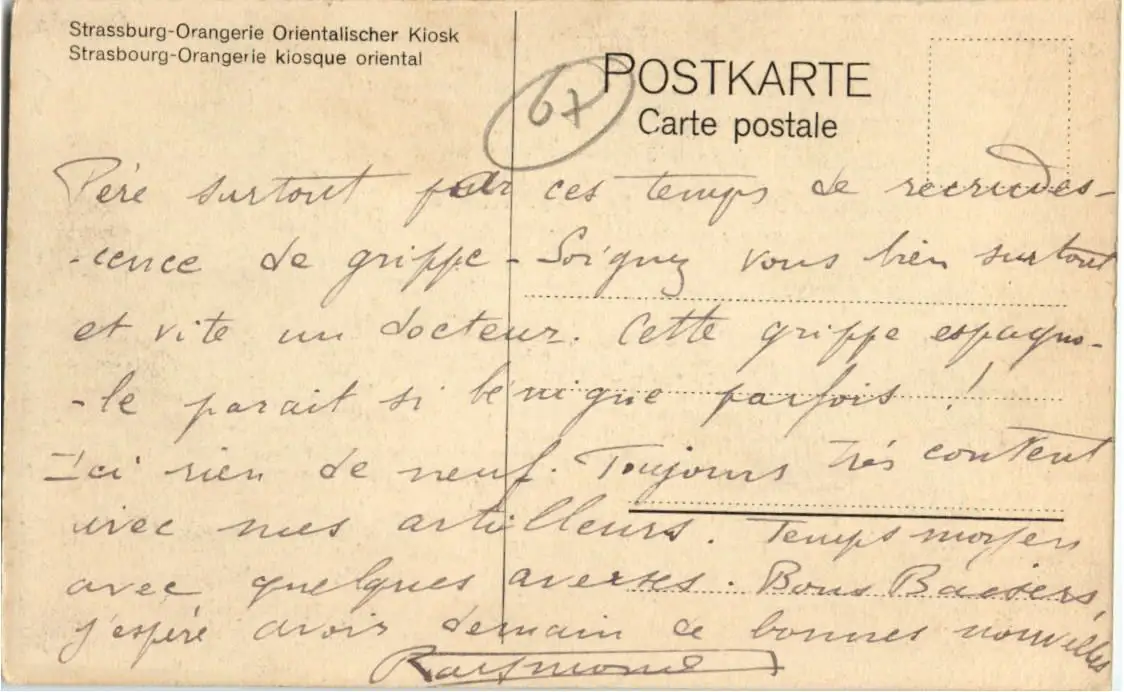 Strassburg-Orangerie Orientalischer Kiosk
Strasbourg-Orangerie kiosque oriental
POSTKARTE
Carte postale
67
Père surtout par ces temps de recrudes-
-cence de grippe - Soignez vous bien surtout
et vite un docteur. Cette grippe espagno-
-le parait si bénigne parfois !
Ici rien de neuf. Toujours très content
avec mes artilleurs. Temps moyen
avec quelques averses. Bons Baisers,
j'espère avoir demain de bonnes nouvelles
Raymond